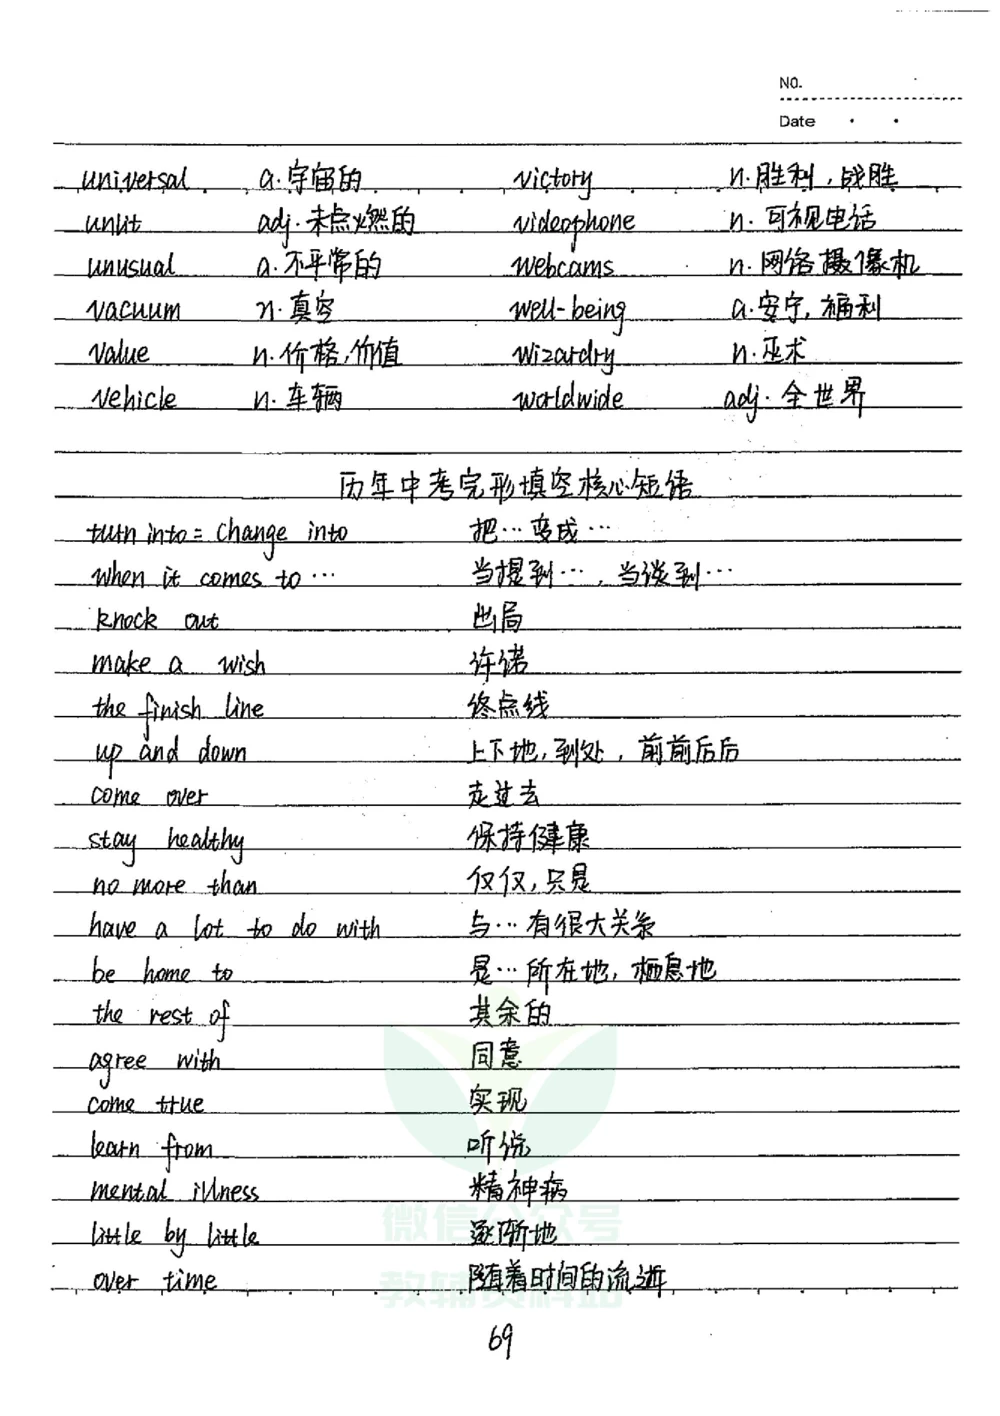 NO.
Date
universal a.宇宙的 victory n.胜利,战胜
unlit adj.未点燃的 videophone n.可视电话
unusual a.不平常的 webcams n.网络摄像机
vacuum n.真空 well-being a.安宁,福利
value n.价格,价值 wizardry n.巫术
vehicle n.车辆 worldwide adj.全世界
历年中考完形填空核心短语
turn into = change into 把…变成…
when it comes to … 当提到…,当谈到…
knock out 出局
make a wish 许诺
the finish line 终点线
up and down 上下地,到处,前前后后
come over 走过去
stay healthy 保持健康
no more than 仅仅,只是
have a lot to do with 与…有很大关系
be home to 是…所在地,栖息地
the rest of 其余的
agree with 同意
come true 实现
learn from 听说
mental illness 精神病
little by little 逐渐地
over time 随着时间的流逝
微信公众号
教辅资料站
69